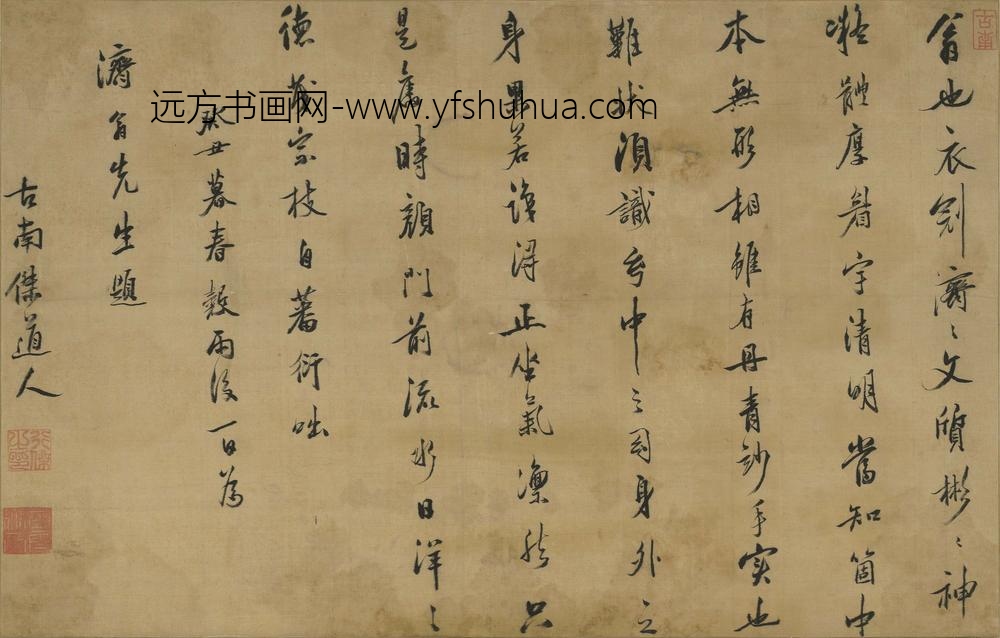 翁也衣剑濟〻文質彬〻神
凝體厚眉宇清明當知箇中
本無形相雖有丹青妙手實也
難狀須識乎中之司身外之
身畢若識得正坐氣凛然只
是舊時顏門前流水日洋〻
德茂宗枝自蕃衍咄
癸丑暮春穀雨後一日為
濟翁先生題
古南傑道人
远方书画网-www.yfshuhua.com